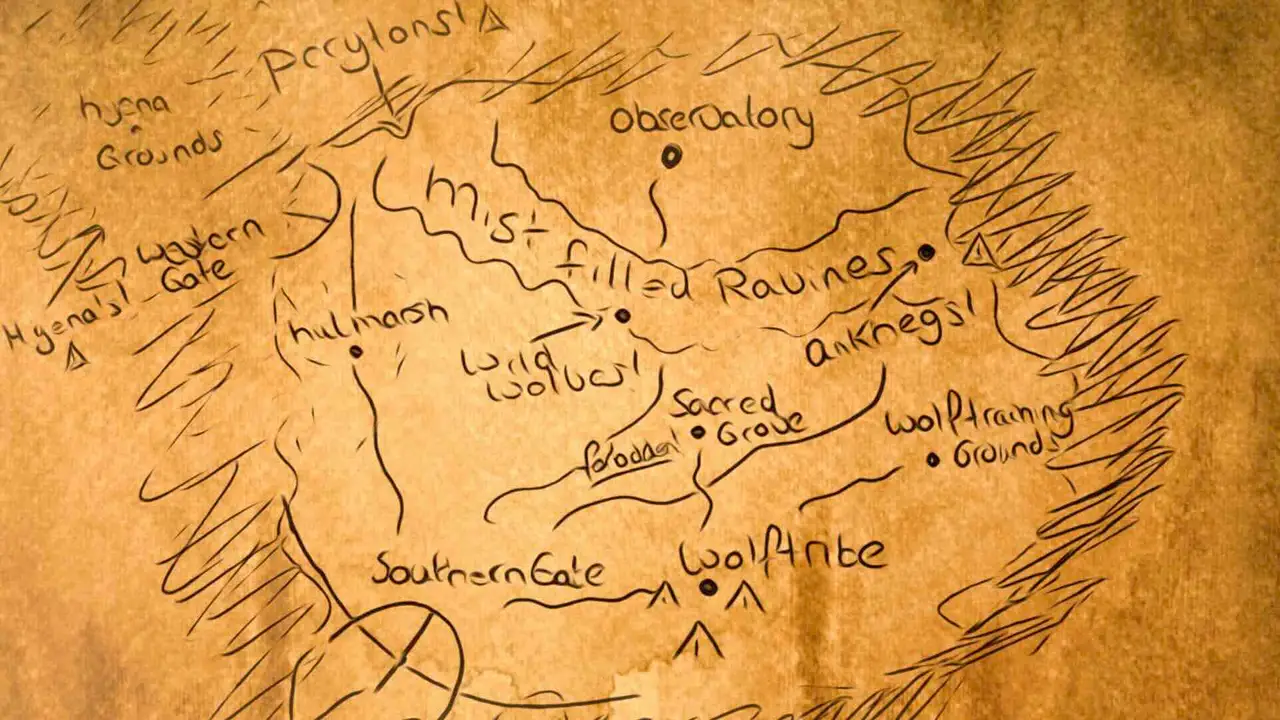 Perytons!
hyena
Grounds
Observatory
Western
Gate
Hyena's!
Mist
filled Ravines
hulmarsh
Wild
Wolves!
anKhegs!
Sacred
Grove
Wolftraining
Grounds
Southern Gate
Wolftribe